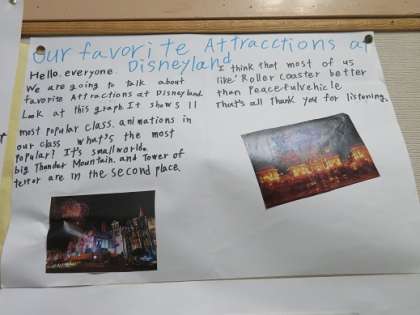 Our favorite Attracctions at
Disneyland
Hello. everyone
We are going to talk about
favorite Attractions at Disneyland.
Look at this graph. It shows 11
most popular class. animations in
our class what's the most
popular? It's smallworld.
big Thunder Mountain. and Tower of
terror are in the second place.
I think that most of us
like Roller coaster better
than Peacefulvehicle
That's all Thank you for listening.